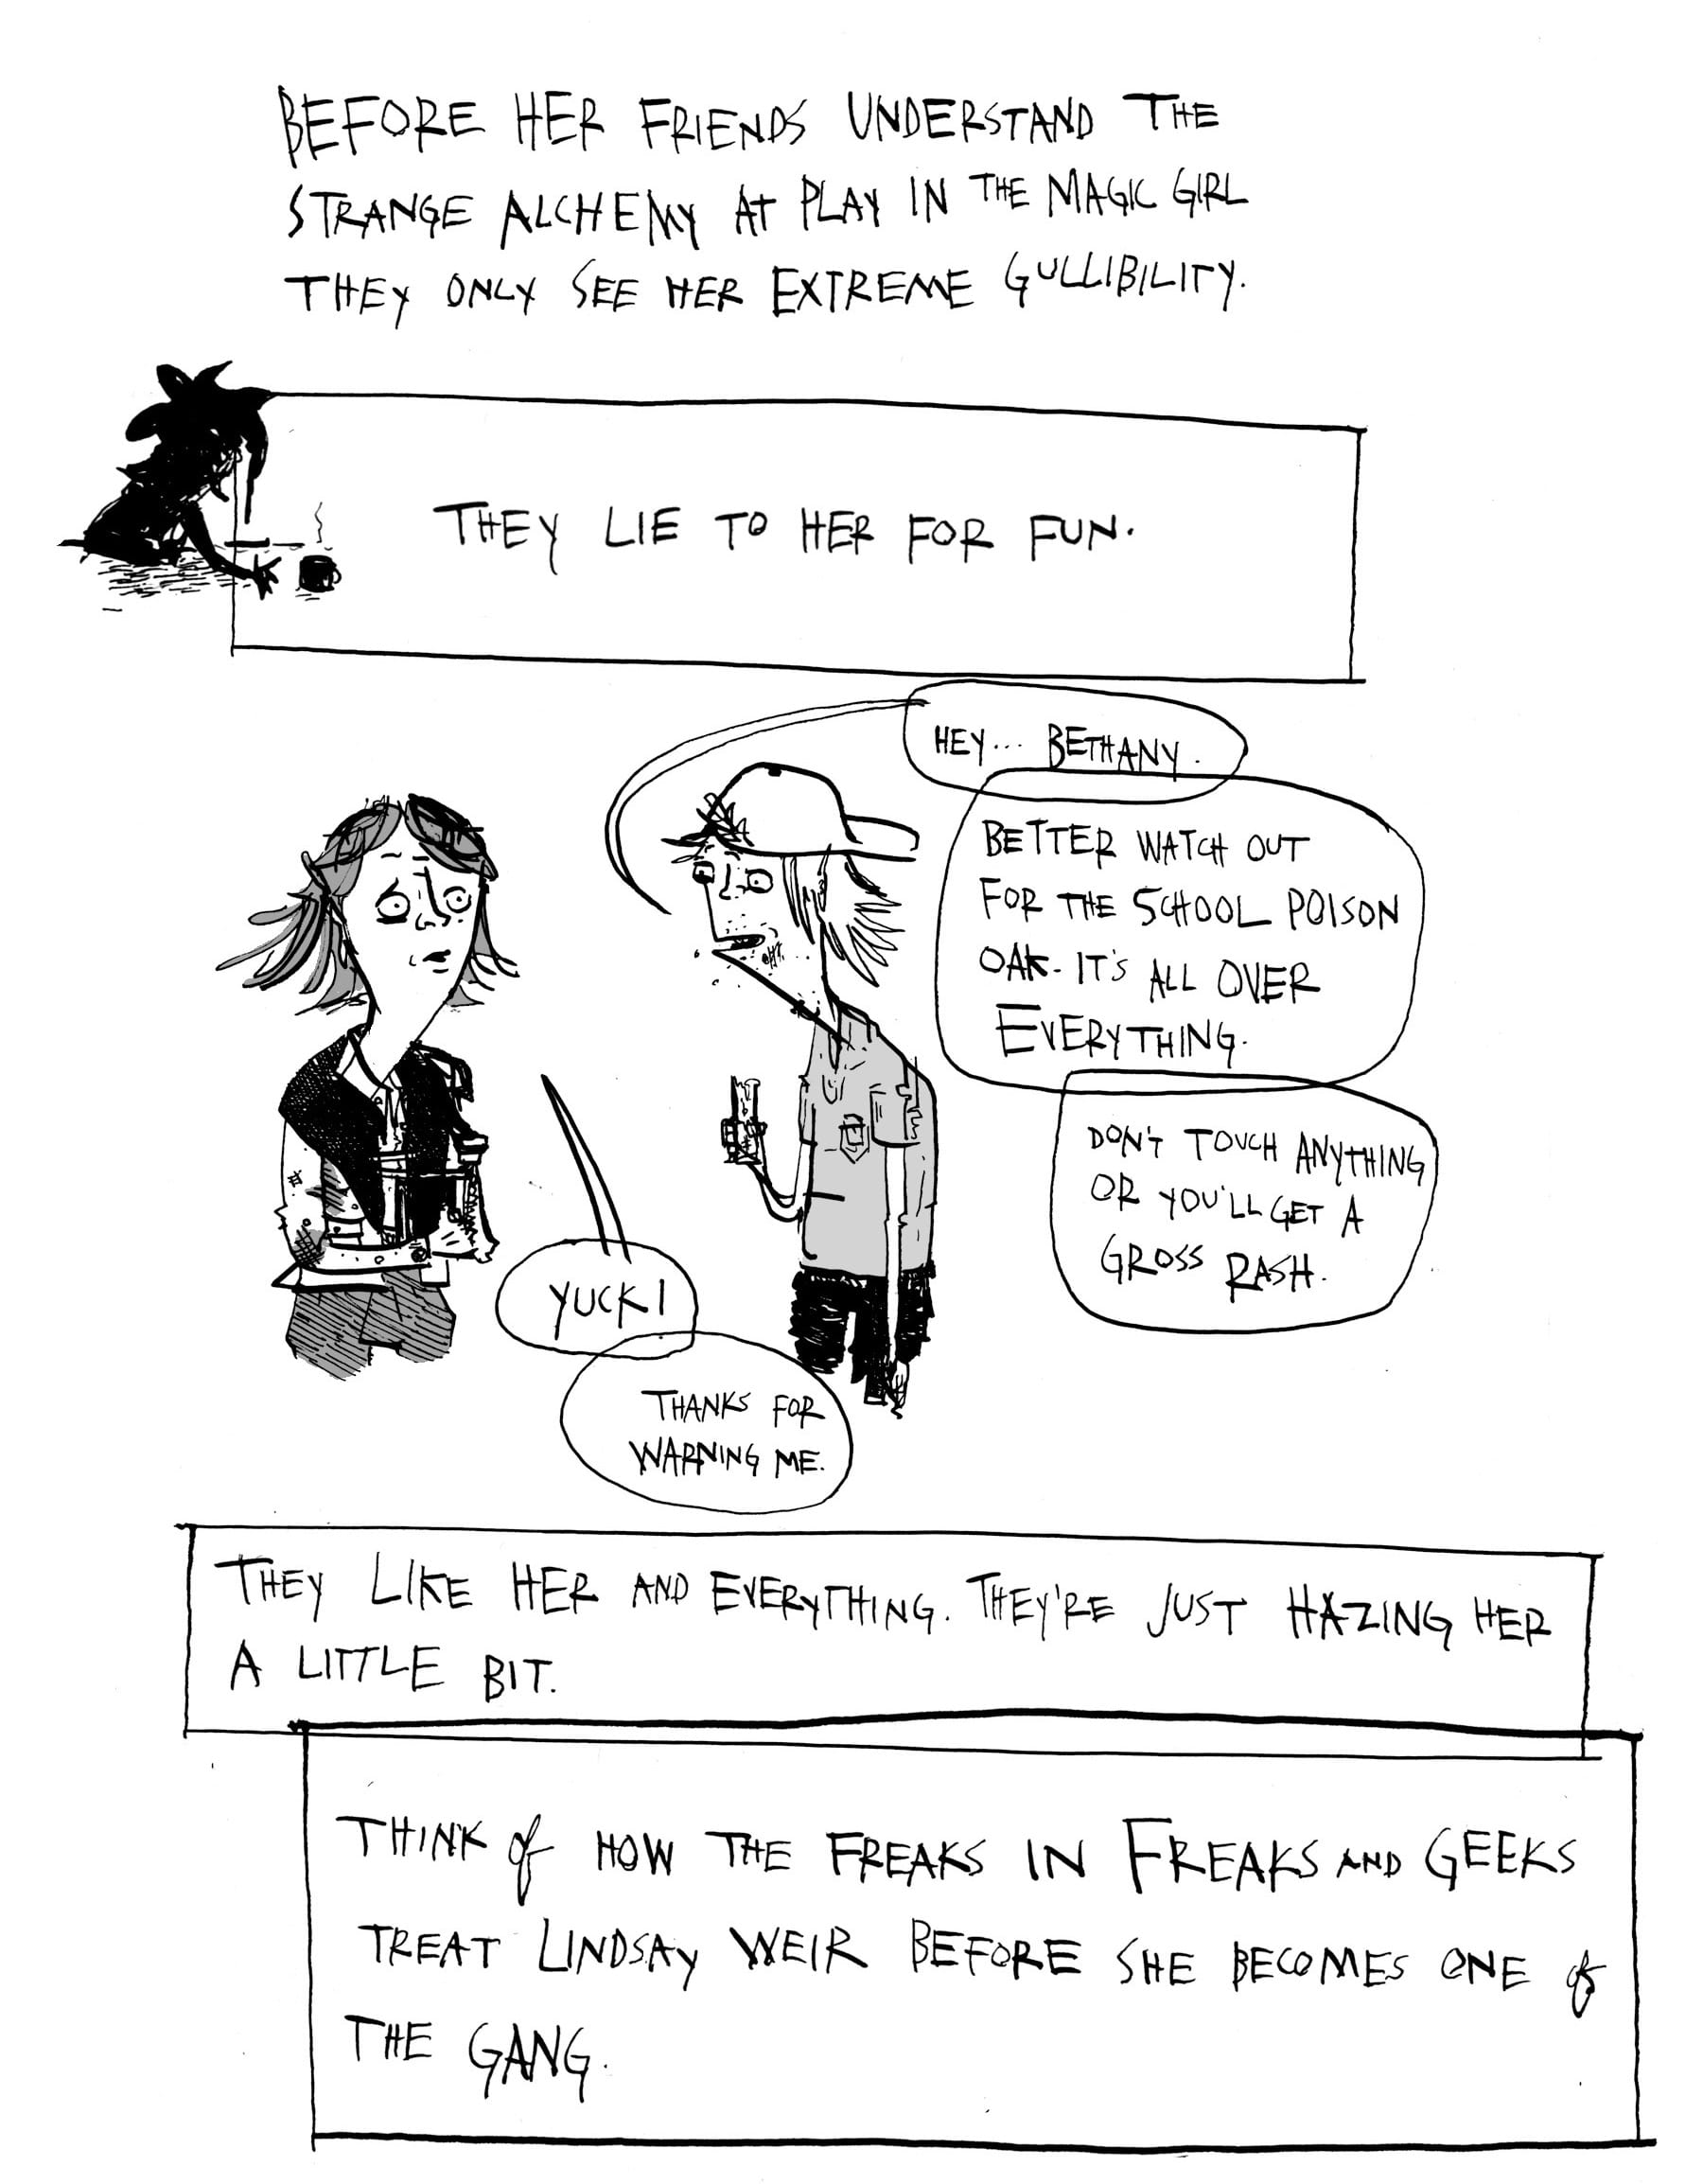 BEFORE HER FRIENDS UNDERSTAND THE
STRANGE ALCHEMY AT PLAY IN THE MAGIC GIRL
THEY ONLY SEE HER EXTREME GULLIBILITY.
THEY LIE TO HER FOR FUN.
HEY... BETHANY.
BETTER WATCH OUT
FOR THE SCHOOL POISON
OAK. IT'S ALL OVER
EVERYTHING.
DON'T TOUCH ANYTHING
OR YOU'LL GET A
GROSS RASH.
YUCK!
THANKS FOR
WARNING ME.
THEY LIKE HER AND EVERYTHING. THEY'RE JUST HAZING HER
A LITTLE BIT.
THINK of HOW THE FREAKS IN FREAKS AND GEEKS
TREAT LINDSAY WEIR BEFORE SHE BECOMES ONE of
THE GANG.